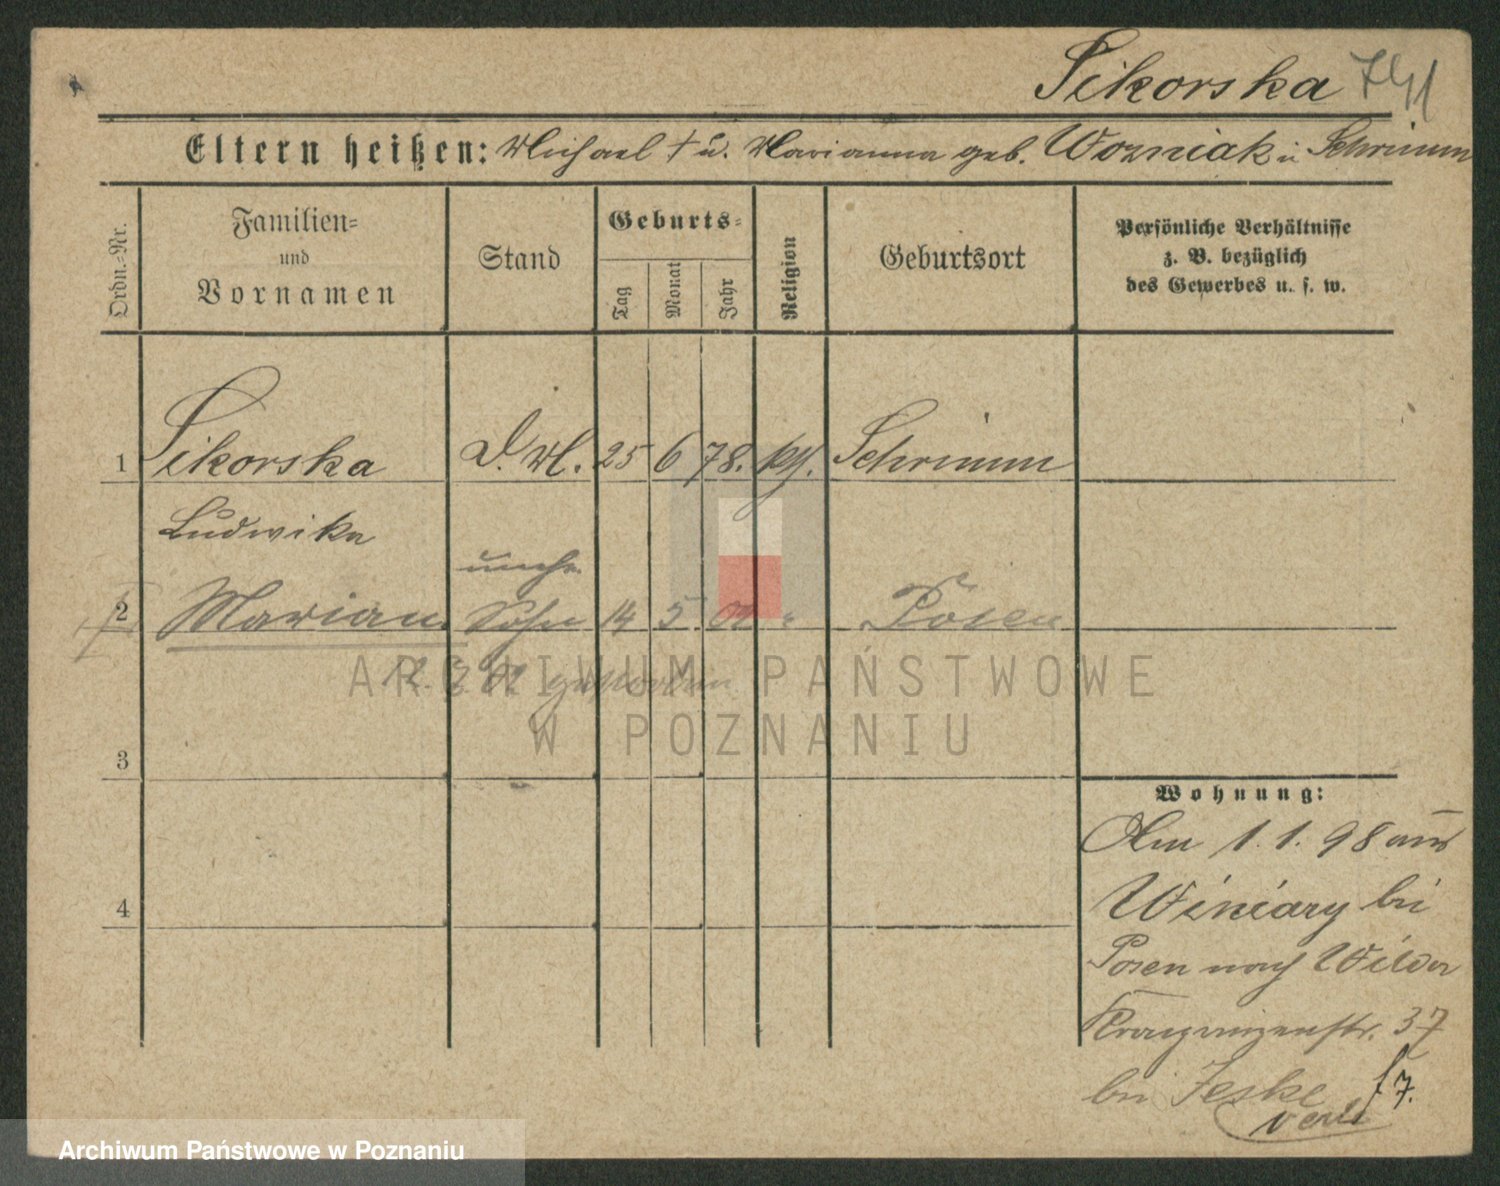 Sikorska 741
Eltern heißen: Michael † u. Marianna geb. Wozniak in Schrimm
Ordn.-Nr.
Familien-
und
Vornamen
Stand
Geburts-
Tag
Monat
Jahr
Religion
Geburtsort
Persönliche Verhältnisse
z. B. bezüglich
des Gewerbes u. s. w.
1 Sikorska D. M. 25 6 78. kth. Schrimm
Ludwika
unehe.
2 Marian Sohn 14 5 02 " Posen
12. 7. 02 gestorben
ARCHIWUM PAŃSTWOWE
W POZNANIU
3
4
Wohnung:
Am 1. 1. 98 aus
Winiary bei
Posen nach Wilda
Kronprinzenstr. 37
bei Jeske f 7.
Archiwum Państwowe w Poznaniu